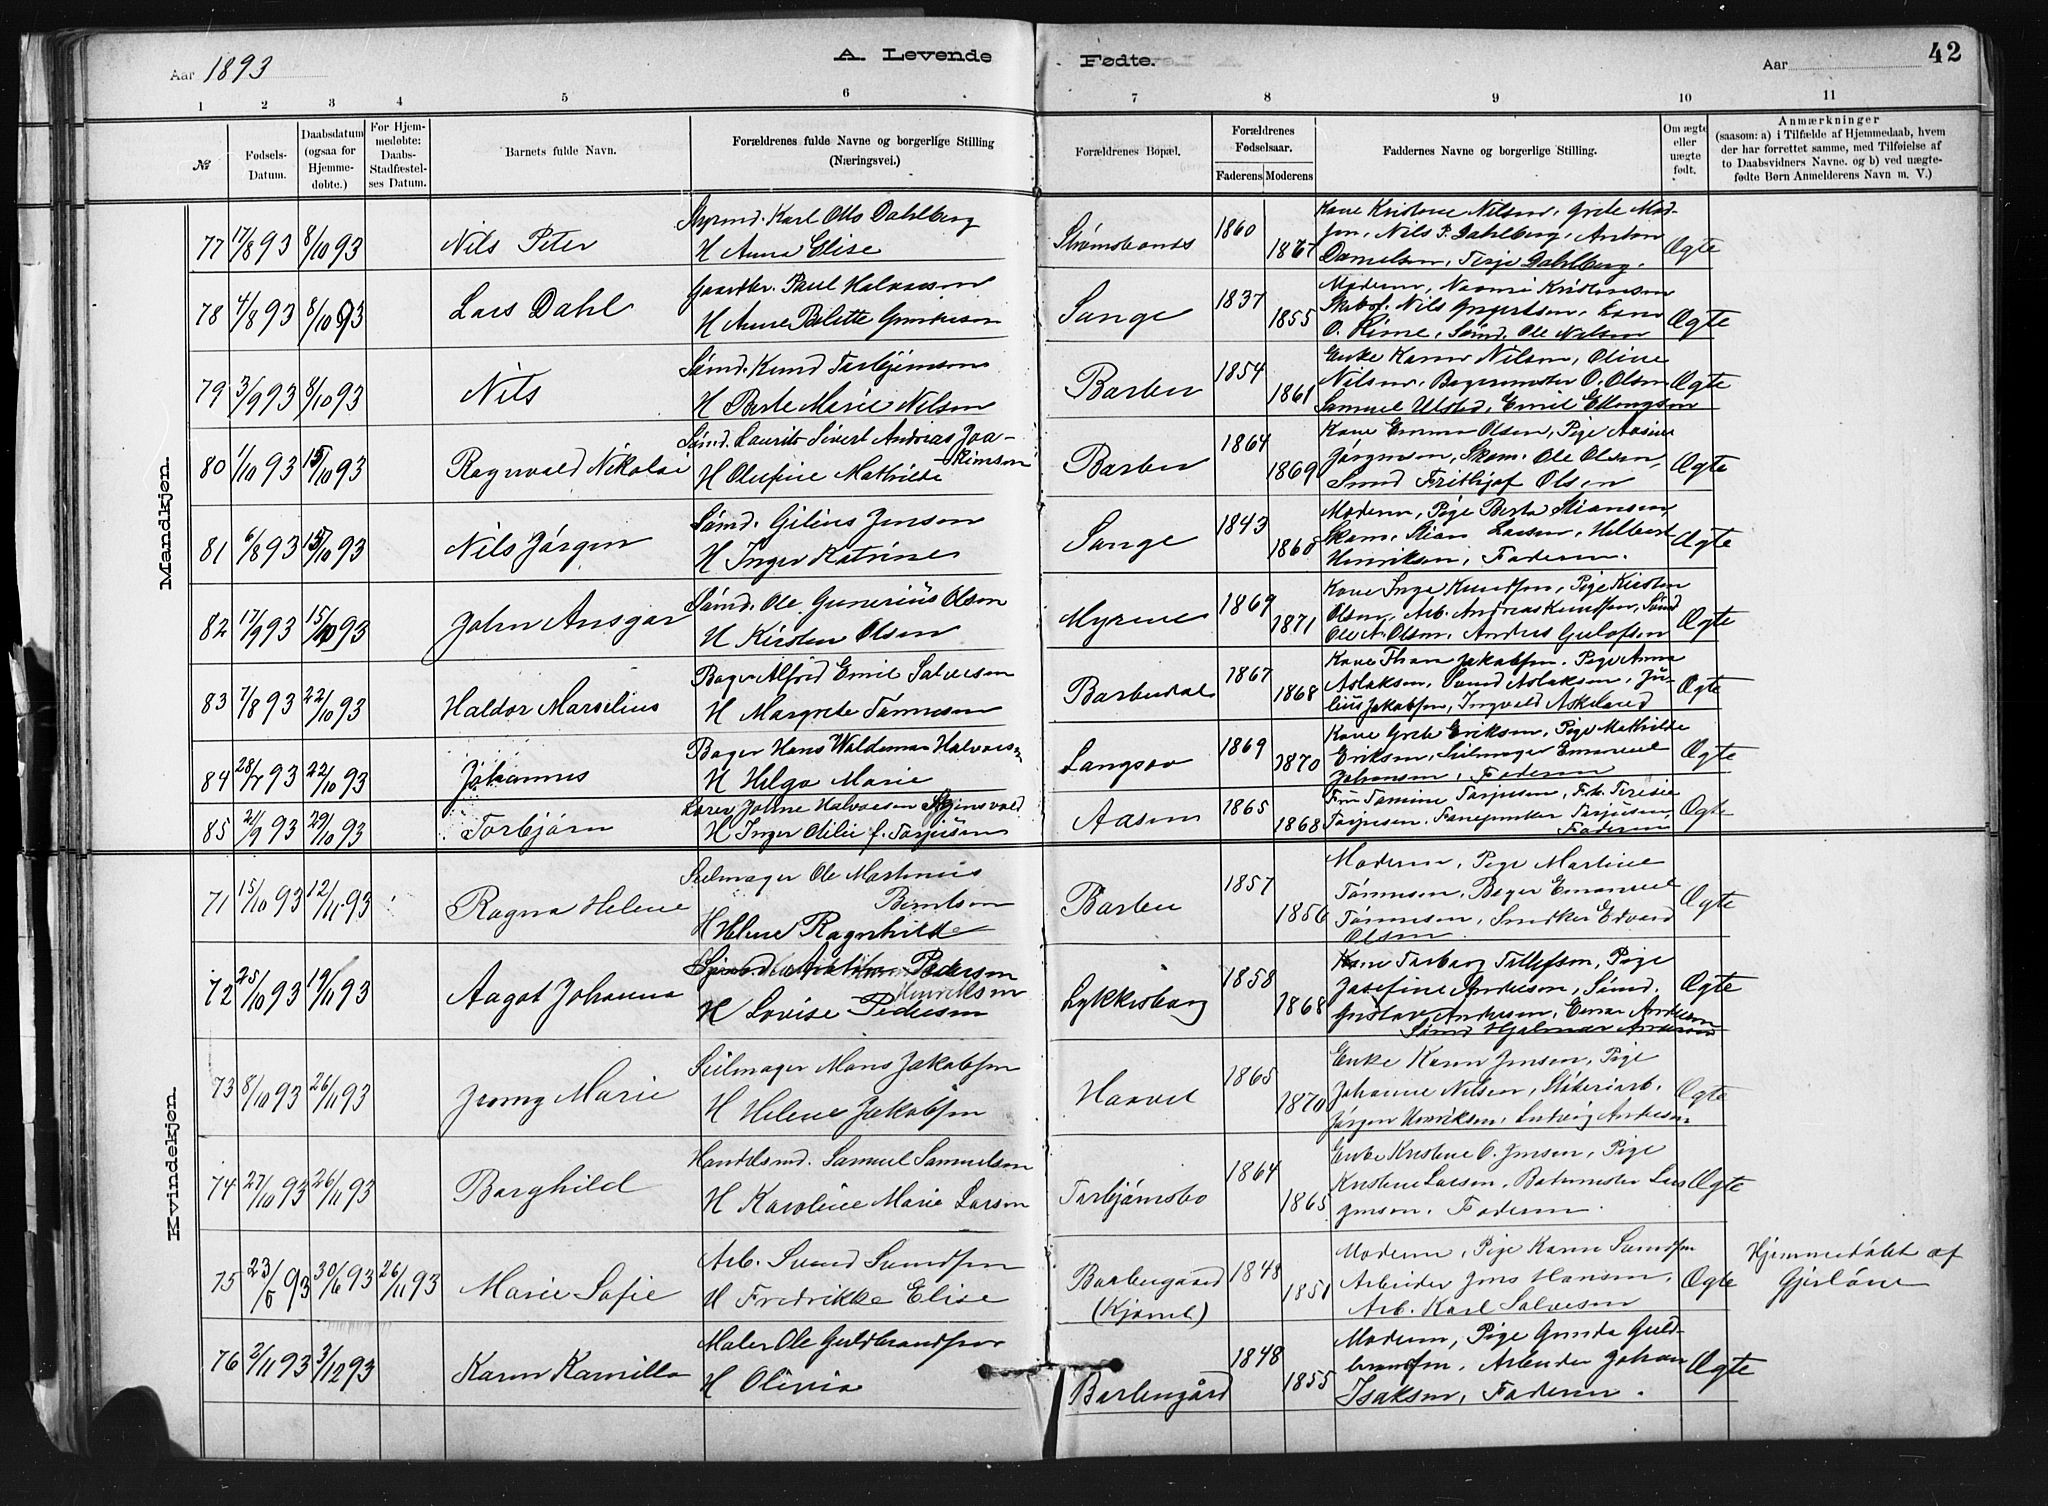 Aar 1893
A. Levende
Fødte.
Aar
42
1 2 3 4 5 6 7 8 9 10 11
№
Fødsels-
Datum.
Daabsdatum
(ogsaa for
Hjemme-
døbte.)
For Hjem-
medøbte:
Daabs-
Stadfæstel-
ses Datum.
Barnets fulde Navn.
Forældrenes fulde Navne og borgerlige Stilling
(Næringsvei.)
Forældrenes Bopæl.
Forældrenes
Fødselsaar.
Faderens Moderens
Faddernes Navne og borgerlige Stilling.
Om ægte
eller
uægte
født.
Anmærkninger
(saasom: a) i Tilfælde af Hjemmedaab, hvem
der har forrettet samme, med Tilføielse af
to Daabsvidners Navne. og b) ved uægte-
fødte Børn Anmelderens Navn m. V.)
Mandkjøn.
77 17/8 93 8/10 93 Nils Peter
Styrmd. Karl Otto Dahlberg
H Anna Elise
Strømsbonds 1860 1867
Kone Kristene Nilsen, Grete Mad-
sen, Nils P. Dahlberg, Anton
Danielsen, Terje Dahlberg.
Ægte
78 4/8 93 8/10 93 Lars Dahl
Gaardbr. Paul Halvorsen
H Anne Bolette Gundersen
Songe 1837 1855
Moderen, Naomi Kristensen
O. Rime, Sømd. Ole Nilsen
Ægte
79 3/9 93 8/10 93 Nils
Sømd. Knud Torbjørnsen
H Berte Marie Nilsen
Barbu 1854 1861
Enke Karen Nilsen, Oline
Nilsen, Bagermester O. Olsen
Samuel Ulsted, Emil Ellingsen
Ægte
80 1/10 93 15/10 93 Ragnvald Nikolai
Sømd. Laurits Sivert Andreas Joa-
kimsen
H Olufine Mathilde
Barbu 1864 1869
Kone Emma Olsen, Pige Aasine
Jørgensen, Skom. Ole Olsen,
Smed Frithjof Olsen
Ægte
81 6/8 93 15/10 93 Nils Jørgen
Sømd. Gilius Jensen
H Inger Katrine
Songe 1843 1860
Moderen, Pige Berta Stiansen,
Skom. Stian Larsen, Helbert
Henriksen, Faderen.
Ægte
82 17/9 93 15/10 93 John Ansgar
Sømd. Ole Gunerius Olsen
H Kirsten Olsen
Myrene 1869 1871
Kone Inge Knudsen, Pige Kirsten
Olsen, Arb. Andreas Knudsen, Sømd
Ole A. Olsen, Anders Gulofsen
Ægte
83 7/8 93 22/10 93 Haldor Marselius
Bager Alfred Emil Salvesen
H Margrete Tønnesen
Barbudal 1867 1868
Kone Thora Jakobsen, Pige Anna
Aslaksen, Svend Aslaksen, Ju-
lius Jakobsen, Ingvald Askeland
Ægte
84 28/7 93 22/10 93 Johannes
Bager Hans Waldemar Halvorsen
H Helga Marie
Langsæv 1869 1870
Kone Grete Eriksen, Pige Mathilde
Eriksen, Seilmager Emanuel
Johansen, Faderen
Ægte
85 21/9 93 29/10 93 Torbjørn
H Inger Otilie f. Terjesen
Aasen 1865 1868
Fru Tomine Terjesen, Frk. Teresie
Faderen
Ægte
Kvindekjøn.
71 15/10 93 12/11 93 Ragna Helene
Seilmager Ole Martinius
Berntsen
H Helene Ragnhild
Barbu 1857 1856
Moderen, Pige Martine
Tønnesen, Bager Emanuel
Tønnesen, Snedker Edvard
Olsen
Ægte
72 25/10 93 19/11 93 Aagot Johanna
Pedersen
Henriksen
H Lovise Pedersen
Lykkesborg 1858 1868
Kone Torborg Tellefsen, Pige
Josefine Andersen, Sømd.
Gustav Andersen, Einar Andersen
Sømd Hjalmar Andersen
Ægte
73 8/10 93 26/11 93 Jenny Marie
Seilmager Mons Jakobsen
H Helene Jakobsen
Haavet 1865 1870
Enke Karen Jensen, Pige
Johanne Nilsen, Støberiarb.
Jørgen Henriksen, Ludvig Andersen
Ægte
74 27/10 93 26/11 93 Borghild
Handelsmd. Samuel Samuelsen
H Karoline Marie Larsen
Torbjørnsbo 1864 1865
Enke Kristine O. Jensen, Pige
Kristene Larsen, Bademester Lars
Jensen, Faderen.
Ægte
75 23/5 93 30/6 93 26/11 93 Marie Sofie
Arb. Svend Svendsen
H Fredrikke Elise
Barbugaard
(Kjønet) 1848 1851
Moderen, Pige Karen Svendsen
Arbeider Jens Hansen,
Arb. Karl Salvesen
Ægte
Hjemmedøbt af
Gjerløw
76 2/11 93 3/12 93 Karen Kamilla
Maler Ole Guldbrandsen
H Olivia
Barbugård 1848 1855
Moderen, Pige Gunda Guld-
brandsen, Arbeider Johan
Isaksen, Faderen.
Ægte